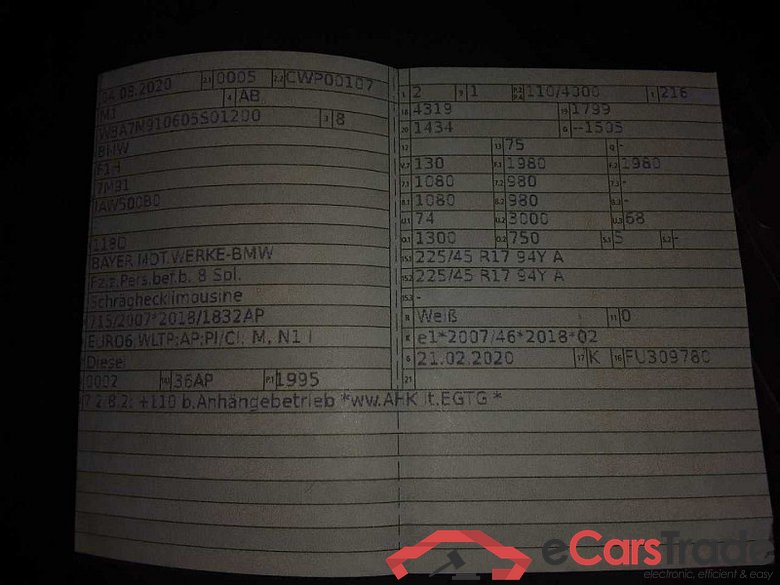 04.08.2020 2.1 0005 2.2 CWP00107
M1 4 AB
WBA7M910605S01200 3 8
BMW
F1H
7M91
1180
BAYER.MOT.WERKE-BMW
Fz.z.Pers.bef.b. 8 Spl.
Schräghecklimousine
715/2007*2018/1832AP
EURO6;WLTP;AP;PI/CI; M, N1 I
Diesel
0002 14.1 36AP P.1 1995
7.2,8.2: +110 b.Anhängebetrieb *ww.AHK lt.EGTG *
L 2 9 1 P.2 P.4 110/4000 T 216
18 4319 19 1799
20 1434 G --1505
12 - 13 75 Q -
V.7 130 F.1 1980 F.2 1980
7.1 1080 7.2 980 7.3 -
8.1 1080 8.2 980 8.3 -
U.1 74 U.2 3000 U.3 68
O.1 1300 O.2 750 S.1 5 S.2 -
15.1 225/45 R17 94Y A
15.2 225/45 R17 94Y A
15.3 -
R Weiß 11 0
K e1*2007/46*2018*02
6 21.02.2020 17 K 16 FU309780
21
eCarsTrade
electronic, efficient & easy